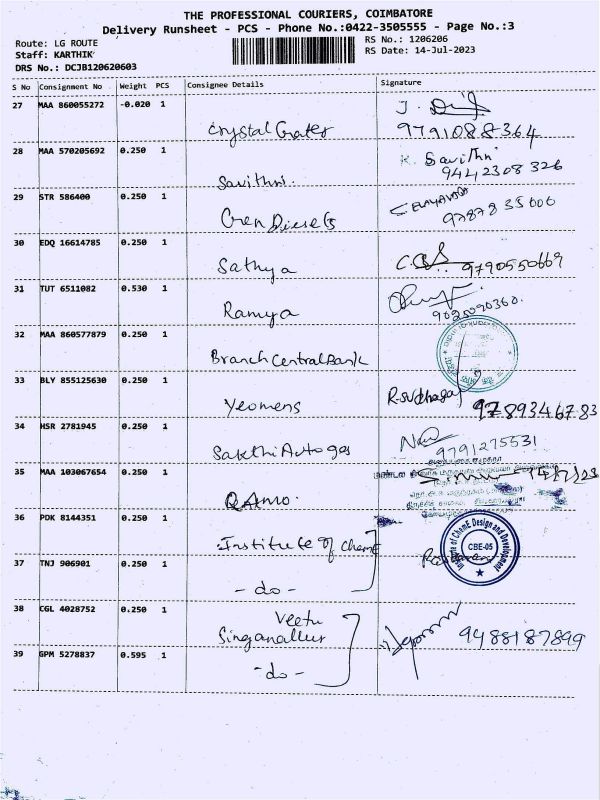 THE PROFESSIONAL COURIERS, COIMBATORE
Delivery Runsheet - PCS - Phone No.:0422-3505555 - Page No.:3
Route: LG ROUTE
RS No.: 1206206
Staff: KARTHIK
RS Date: 14-Jul-2023
DRS No.: DCJB120620603
S No Consignment No Weight PCS Consignee Details Signature
27 MAA 860055272 -0.020 1
Crystal Crates 9791088364
28 MAA 570205692 0.250 1 K. Savithri
Savithri. 9442308326
29 STR 586400 0.250 1
Gren Diesels 97878 35000
30 EDQ 16614785 0.250 1
Sathya 9790550669
31 TUT 6511082 0.530 1
Ramya 9025090360.
32 MAA 860577879 0.250 1
Branch Central Bank
33 BLY 855125630 0.250 1
Yeomens 9789346783
34 HSR 2781945 0.250 1
Sakthi Auto gas 9791275531
35 MAA 103067654 0.250 1 14/7/23
36 PDK 8144351 0.250 1
Institute of ChemE
Institute of ChemE Design and Development
CBE-05
37 TNJ 906901 0.250 1
- do -
38 CGL 4028752 0.250 1 Veetu
Singanallur 9488187899
39 GPM 5278837 0.595 1
- do -